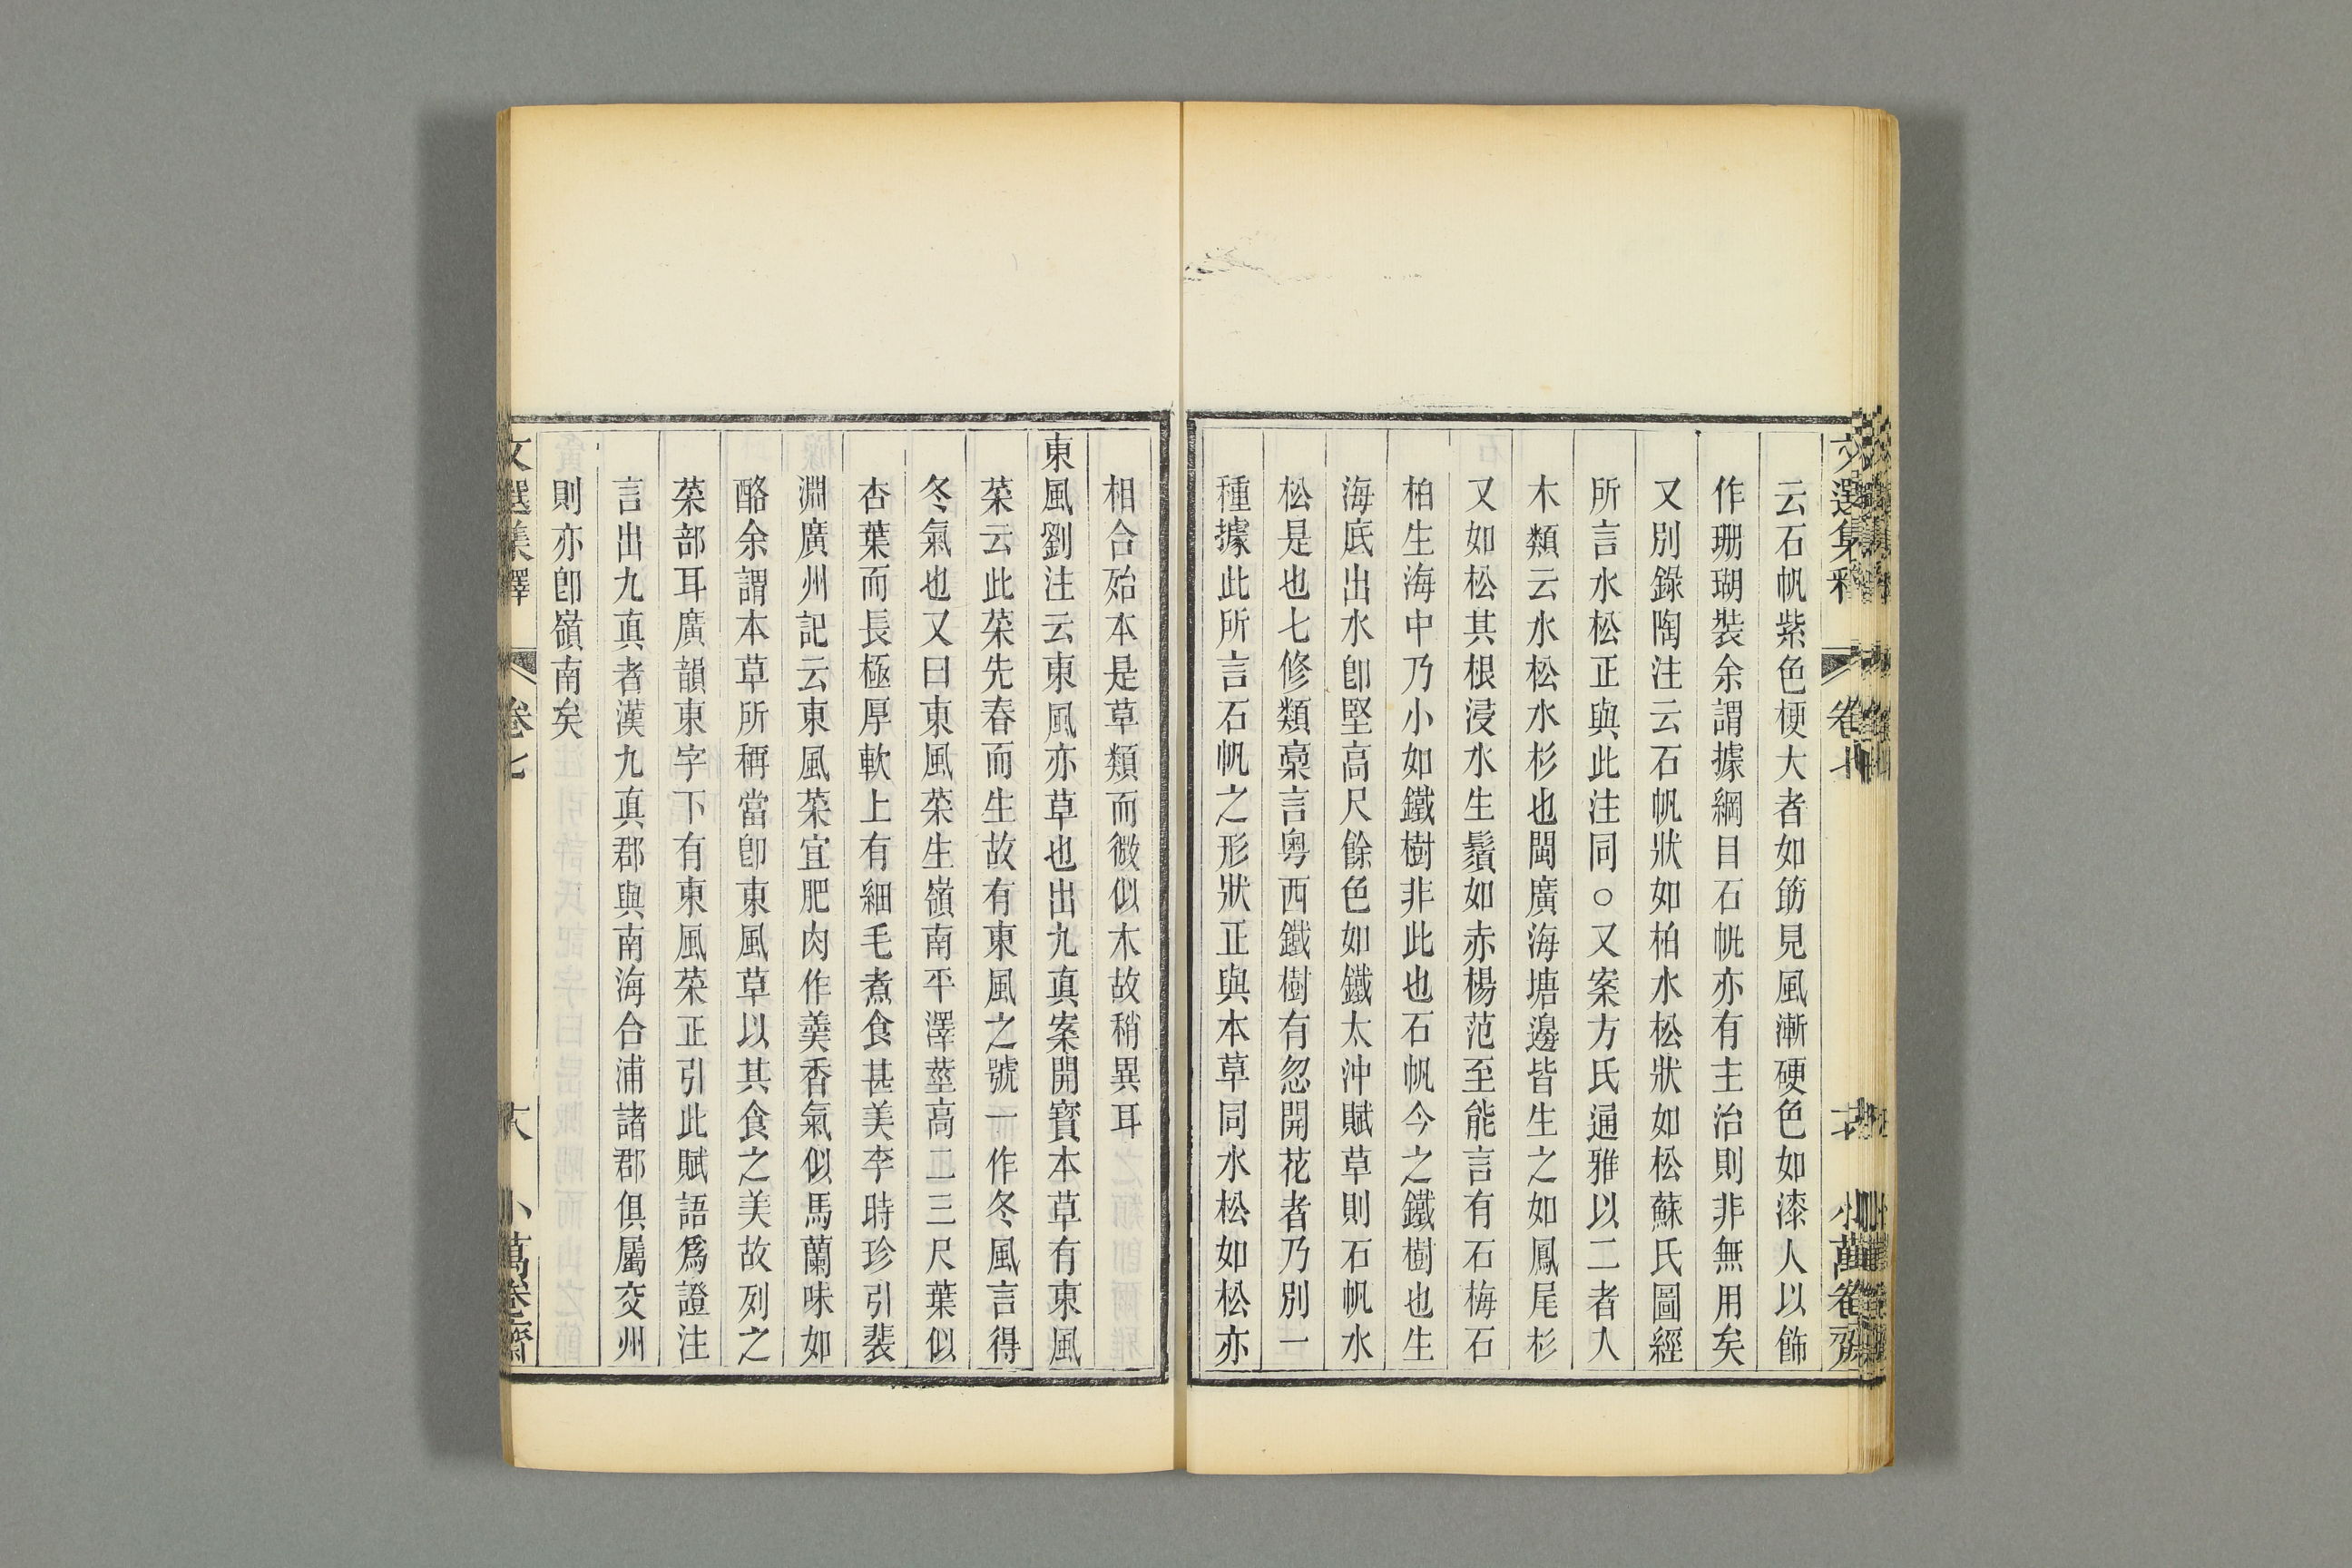 文選集釋 卷七 小萬卷齋
云石帆紫色梗大者如筯見風漸硬色如漆人以飾
作珊瑚裝余謂據綱目石帆亦有主治則非無用矣
又別錄陶注云石帆狀如柏水松狀如松蘇氏圖經
所言水松正與此注同○又案方氏通雅以二者人
木類云水松水杉也閩廣海塘邊皆生之如鳳尾杉
又如松其根浸水生鬚如赤楊范至能言有石梅石
柏生海中乃小如鐵樹非此也石帆今之鐵樹也生
海底出水卽堅高尺餘色如鐵太沖賦草則石帆水
松是也七修類稾言粤西鐵樹有忽開花者乃別一
種據此所言石帆之形狀正與本草同水松如松亦
相合殆本是草類而微似木故稍異耳
東風劉注云東風亦草也出九真案開寶本草有東風
菜云此菜先春而生故有東風之號一作冬風言得
冬氣也又曰東風菜生嶺南平澤莖高二三尺葉似
杏葉而長極厚軟上有細毛煮食甚美李時珍引裴
淵廣州記云東風菜宜肥肉作羹香氣似馬蘭味如
酪余謂本草所稱當卽東風草以其食之美故列之
菜部耳廣韻東字下有東風菜正引此賦語爲證注
言出九真者漢九真郡與南海合浦諸郡俱屬交州
則亦卽嶺南矣
文選集釋 卷七 六 小萬卷齋